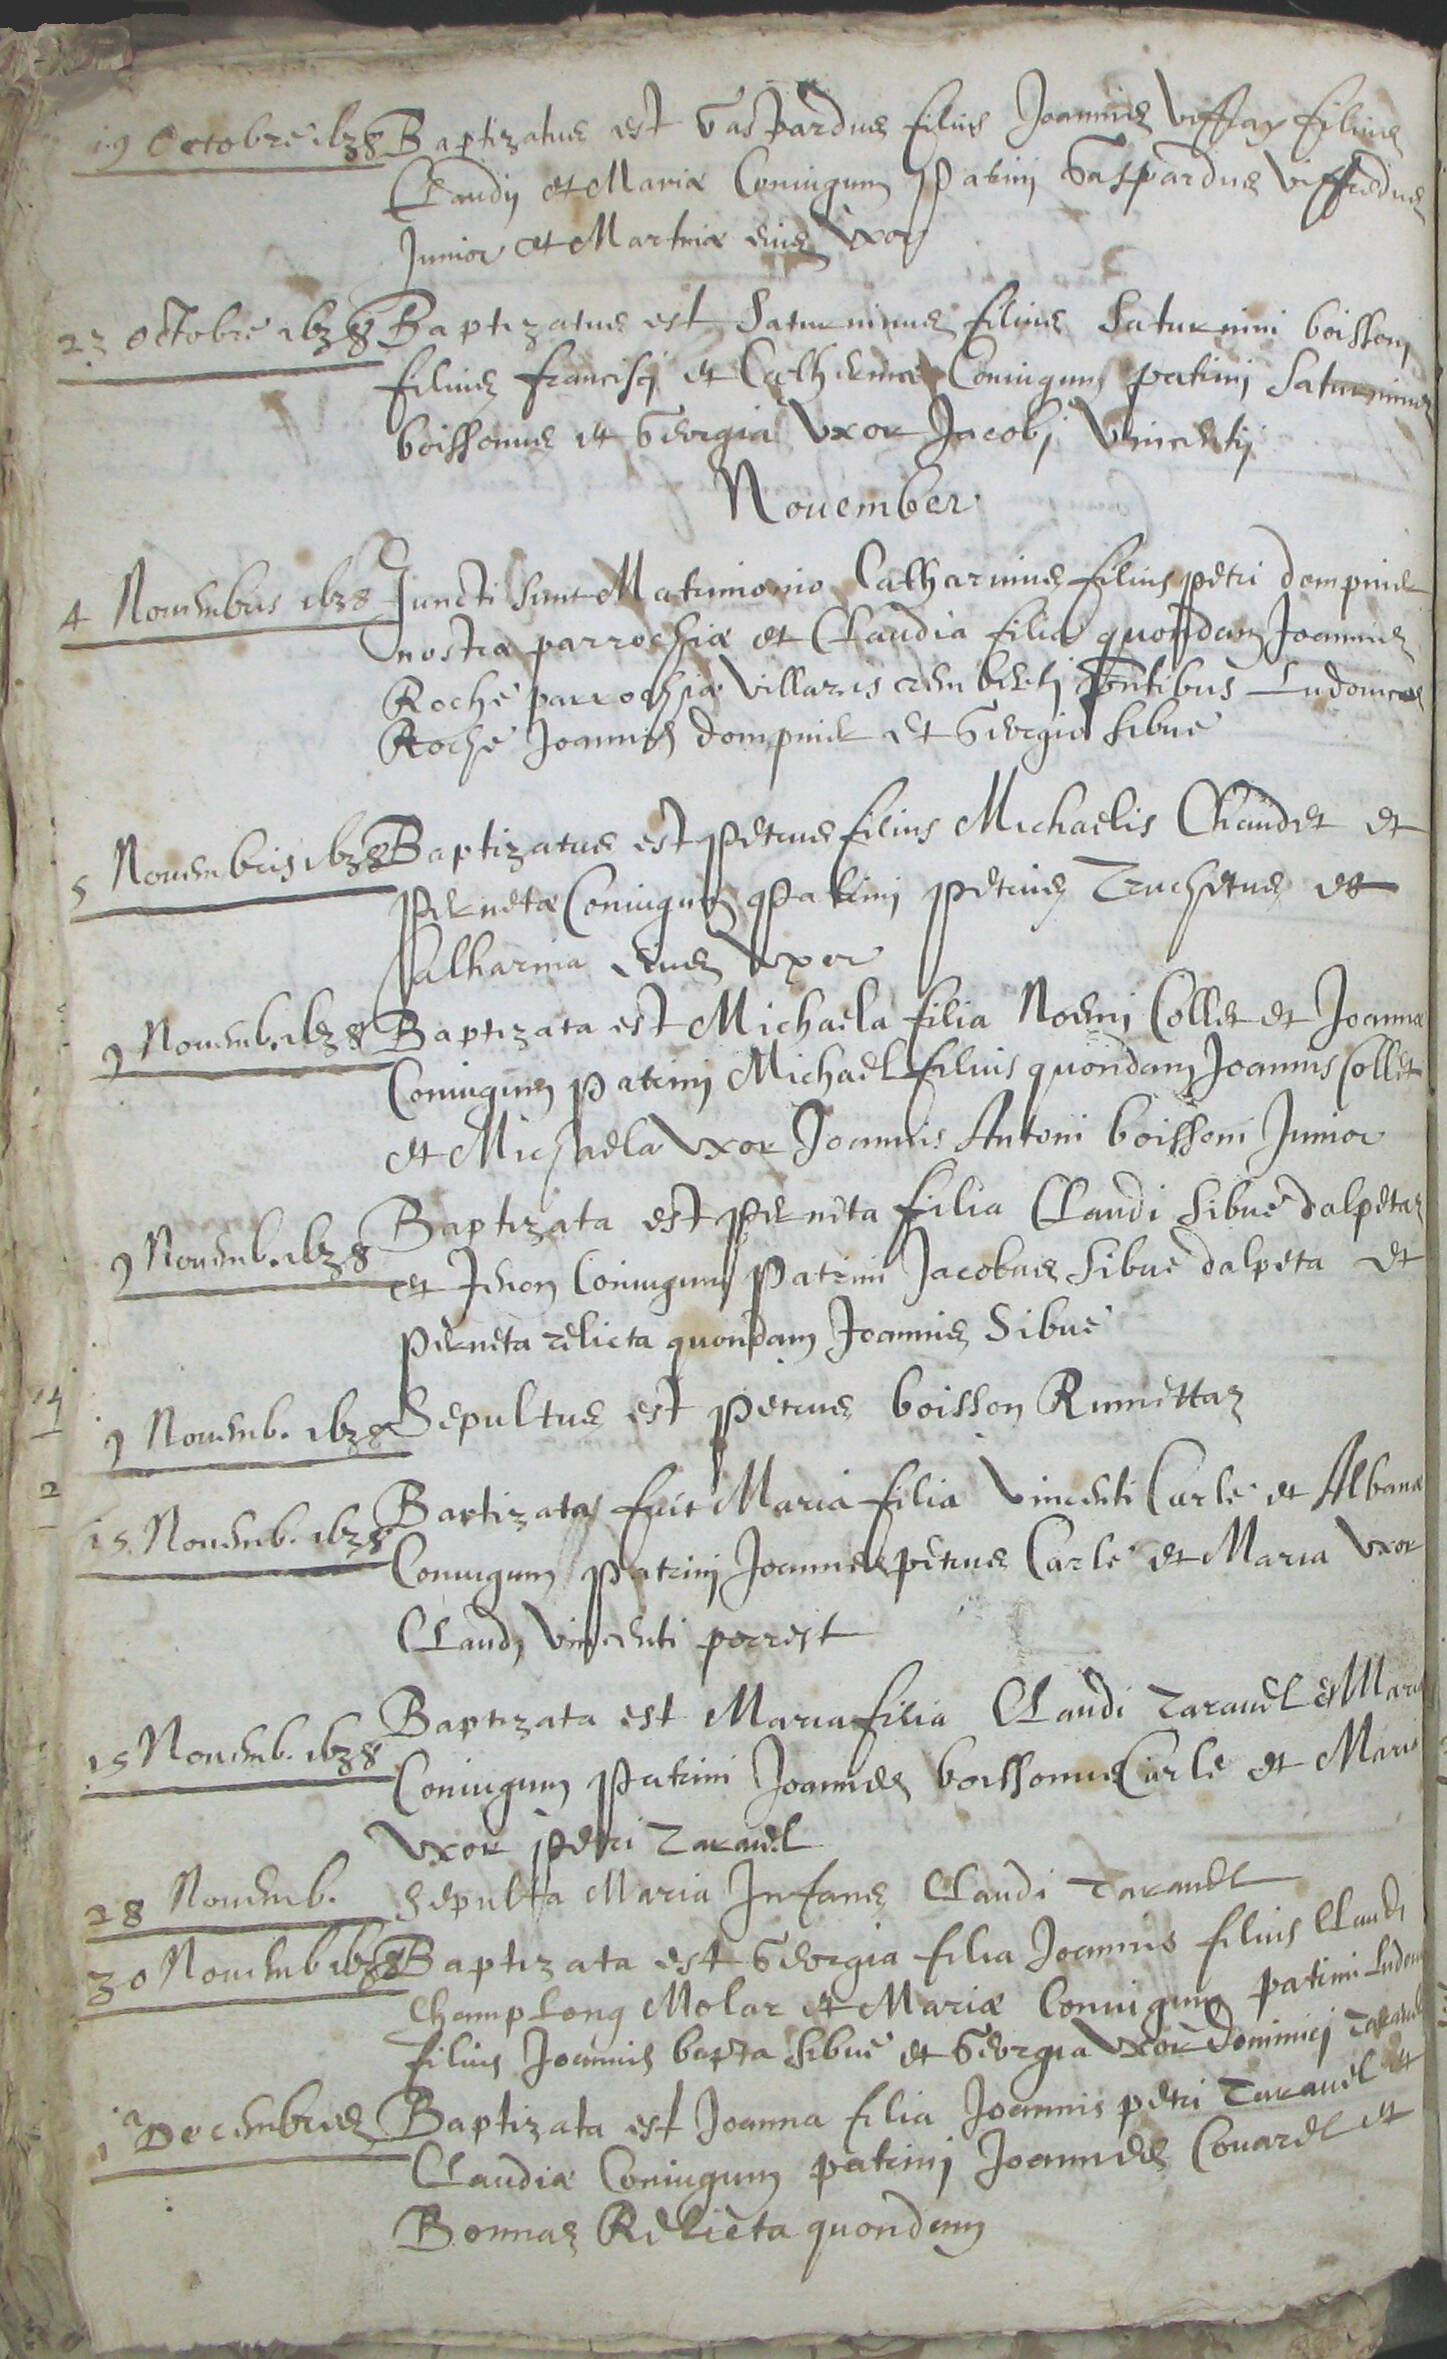 19 Octobre 1638 Baptizatus est Gaspardus filius Joannis Viffray filius
Claudij et Mariæ Coniugum Patrinj Gaspardus Viffredus
Junior et Martiræ eius Vxor
23 Octobre 1638 Baptizatus est Saturninus filius Saturnini boissonj
filius francisci et Catherinæ Coniugum patrinj Saturninus
boissonus et Georgia Vxor Jacobj Vincentij
Nouember
4 Nouembris 1638 Juncti sunt Matrimonio Catharinus filius petri dompnier
nostræ parrochiæ et Claudia filia quondam Joannis
Roche parrochiæ Villaris Ludouicus
Roche Joannis dompnier et Georgio Sibue
5 Nouembris 1638 Baptizatus est petrus filius Michaelis Chaudet et
pernetæ Coniugum Patrinj petrus Truchetus et
Catharina eius Vxor
9 Nouemb. 1638 Baptizata est Michaela filia Noemj Collet et Joannæ
Coniugum patrinj Michael filius quondam Joannis Collet
et Michaela Vxor Joannis Antoni boissoni Junior
9 Nouemb. 1638 Baptizata est perneta filia Claudi Sibue dalpetaz
et Jenon Coniugum patrini Jacobus Sibue dalpeta et
perneta relicta quondam Joannis Sibue
9 Nouemb. 1638 Sepultus est petrus boisson Rumettaz
15 Nouemb. 1638 Baptizata fuit Maria filia Vincenti Carle et Albanæ
Coniugum patrinj Joannes petrus Carle et Maria Vxor
Claudj Vincenti porrest
15 Nouemb. 1638 Baptizata est Maria filia Claudi Tarauel et Mariæ
Coniugum patrini Joannes boissonus Carle et Maria
Vxor petri Tarauel
28 Nouemb. Sepulta Maria Infans Claudi Tarauel
30 Nouemb 1638 Baptizata est Georgia filia Joannis filius Claudi
Champlong Molar et Mariæ Coniugum patrini
filius Joannis bapta Sibue et Georgia Vxor Dominicj Tarauel
1a Decembris Baptizata est Joanna filia Joannis petri Tarauel et
Claudiæ Coniugum patrinj Joannes Couarel et
Bonnaz Relicta quondam